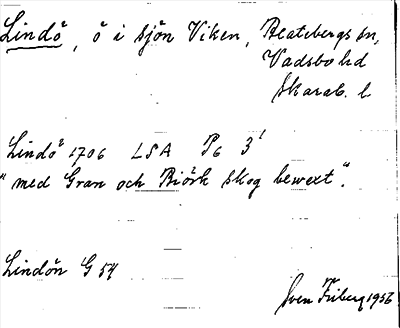 Lindö, ö i sjön Viken, Beatebergs sn,
Vadsbo hd
Skarab. l
Lindö 1706 LSA P6 3¹
"med Gran och Biörk skog bewext".
Lindön G 54
Sven Friberg 1956